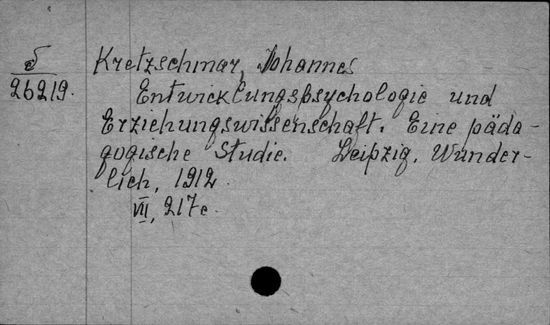 Kretzschmar, Johannes
26219.
Entwicklungspsychologie und
Erziehungswissenschaft. Eine päda-
gogische Studie. Leipzig, Wunder-
lich, 1912.
VII, 217 c.